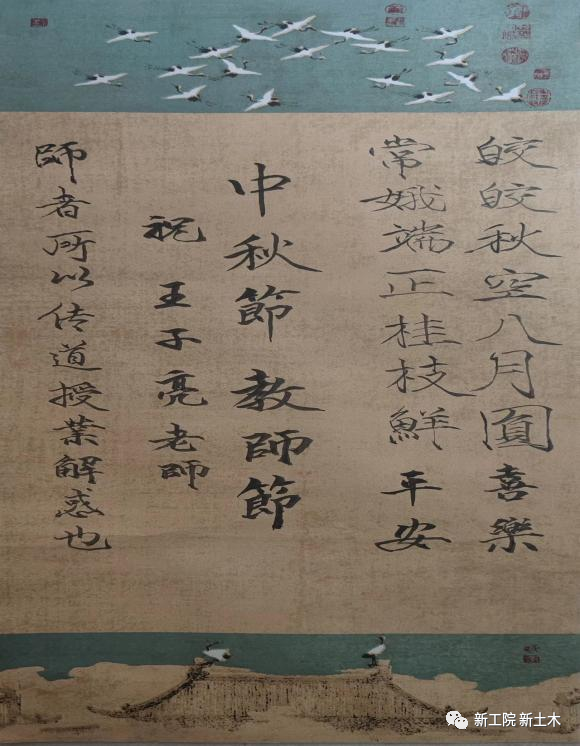 皎皎秋空八月圓喜樂
常娥端正桂枝鮮平安
中秋節教師節
祝王子亮老師
師者所以传道授業解惑也
新工院 新土木